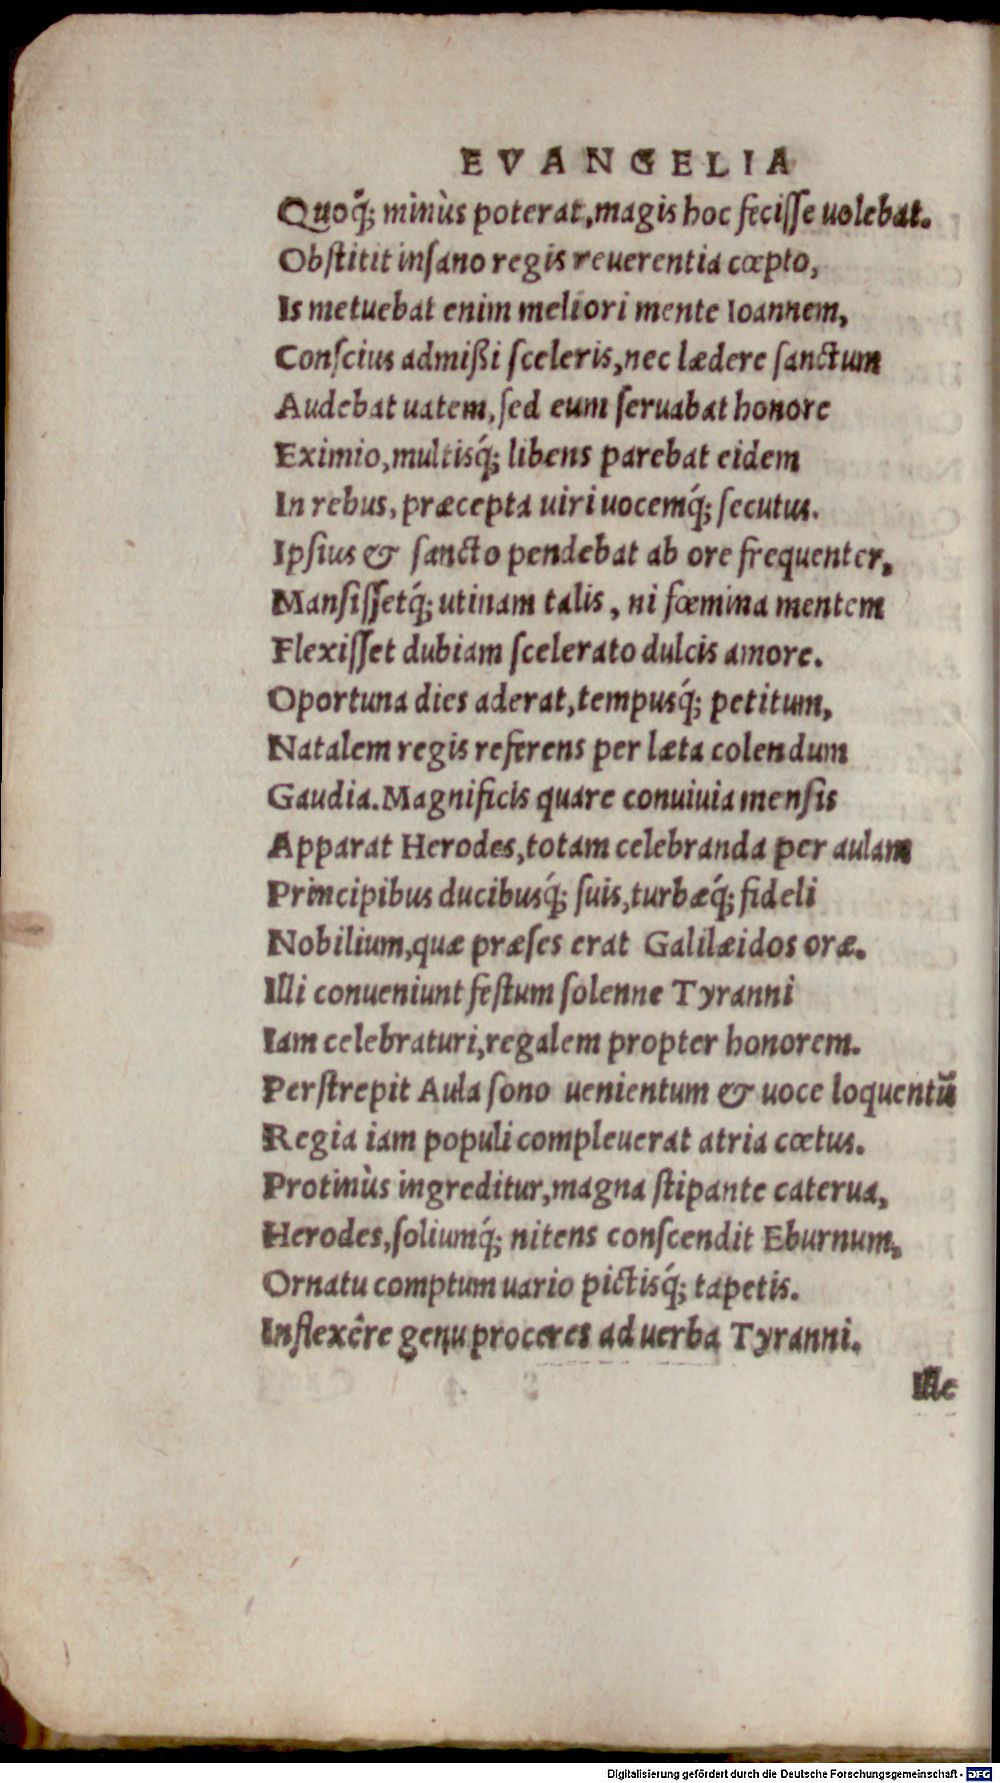 EVANGELIA
Quoq́; minùs poterat, magis hoc fecisse uolebat.
Obstitit insano regis reuerentia cœpto,
Is metuebat enim meliori mente Ioannem,
Conscius admißi sceleris, nec lædere sanctum
Audebat uatem, sed eum seruabat honore
Eximio, multisq́; libens parebat eidem
In rebus, præcepta uiri uocemq́; secutus.
Ipsius & sancto pendebat ab ore frequenter,
Mansissetq́; utinam talis, ni fœmina mentem
Flexisset dubiam scelerato dulcis amore.
Oportuna dies aderat, tempusq́; petitum,
Natalem regis referens per læta colendum
Gaudia. Magnificis quare conuiuia mensis
Apparat Herodes, totam celebranda per aulam
Principibus ducibusq́; suis, turbæq́; fideli
Nobilium, quæ præses erat Galilæidos oræ.
Illi conueniunt festum solenne Tyranni
Iam celebraturi, regalem propter honorem.
Perstrepit Aula sono uenientum & uoce loquentũ
Regia iam populi compleuerat atria cœtus.
Protinùs ingreditur, magna stipante caterua,
Herodes, soliumq́; nitens conscendit Eburnum,
Ornatu comptum uario pictisq́; tapetis.
Inflexêre genu proceres ad uerba Tyranni.
Ille
Digitalisierung gefördert durch die Deutsche Forschungsgemeinschaft - DFG